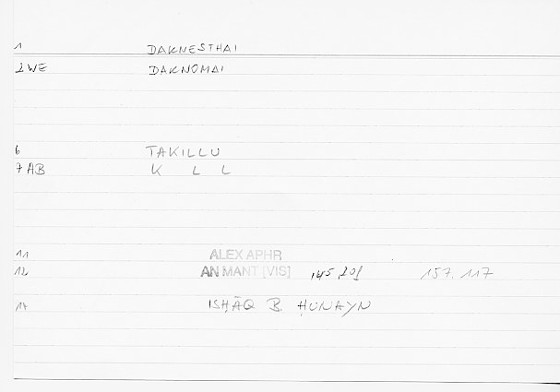 1 DAKNESTHAI
2WE DAKNOMAI
6 TAKILLU
7 AB K L L
11 ALEX APHR
12 AN MANT [VIS] 145,20f 157,117
14 ISḤĀQ B ḤUNAYN